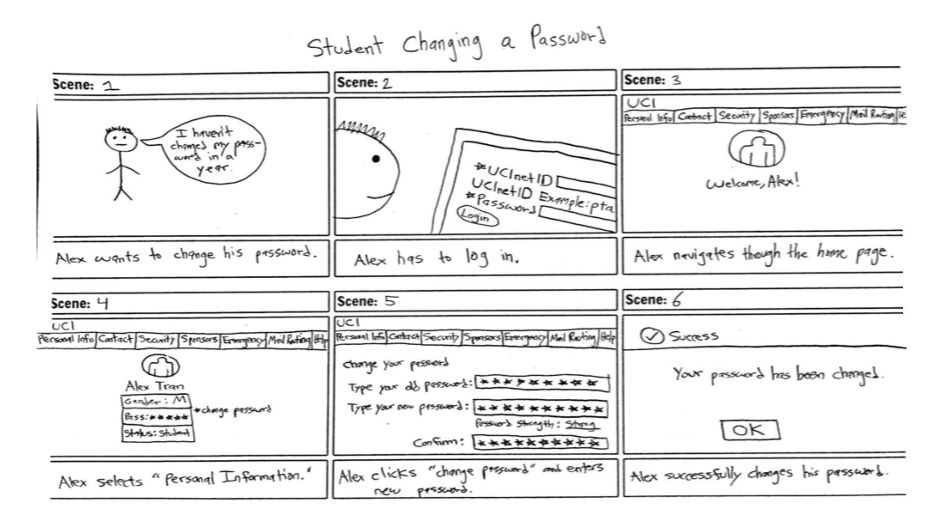 Student Changing a Password
Scene: 1
I haven't
changed my pass-
word in a
year.
Alex wants to change his password.
Scene: 2
*UCInetID
UCInetID Example: pta
*Password
Login
Alex has to log in.
Scene: 3
UCI
Personal Info Contact Security Sponsors Emergency Mail Routing
Welcome, Alex!
Alex navigates though the home page.
Scene: 4
UCI
Personal Info Contact Security Sponsors Emergency Mail Routing Help
Alex Tran
Gender: M
Pass:*****
*change password
Status: Student
Alex selects "Personal Information."
Scene: 5
UCI
Personal Info Contact Security Sponsors Emergency Mail Routing Help
Change your password
Type your old password: **********
Type your new password: **********
Password Strength: Strong
Confirm: **********
Alex clicks "change password" and enters
new password.
Scene: 6
Success
Your password has been changed.
OK
Alex successfully changes his password.